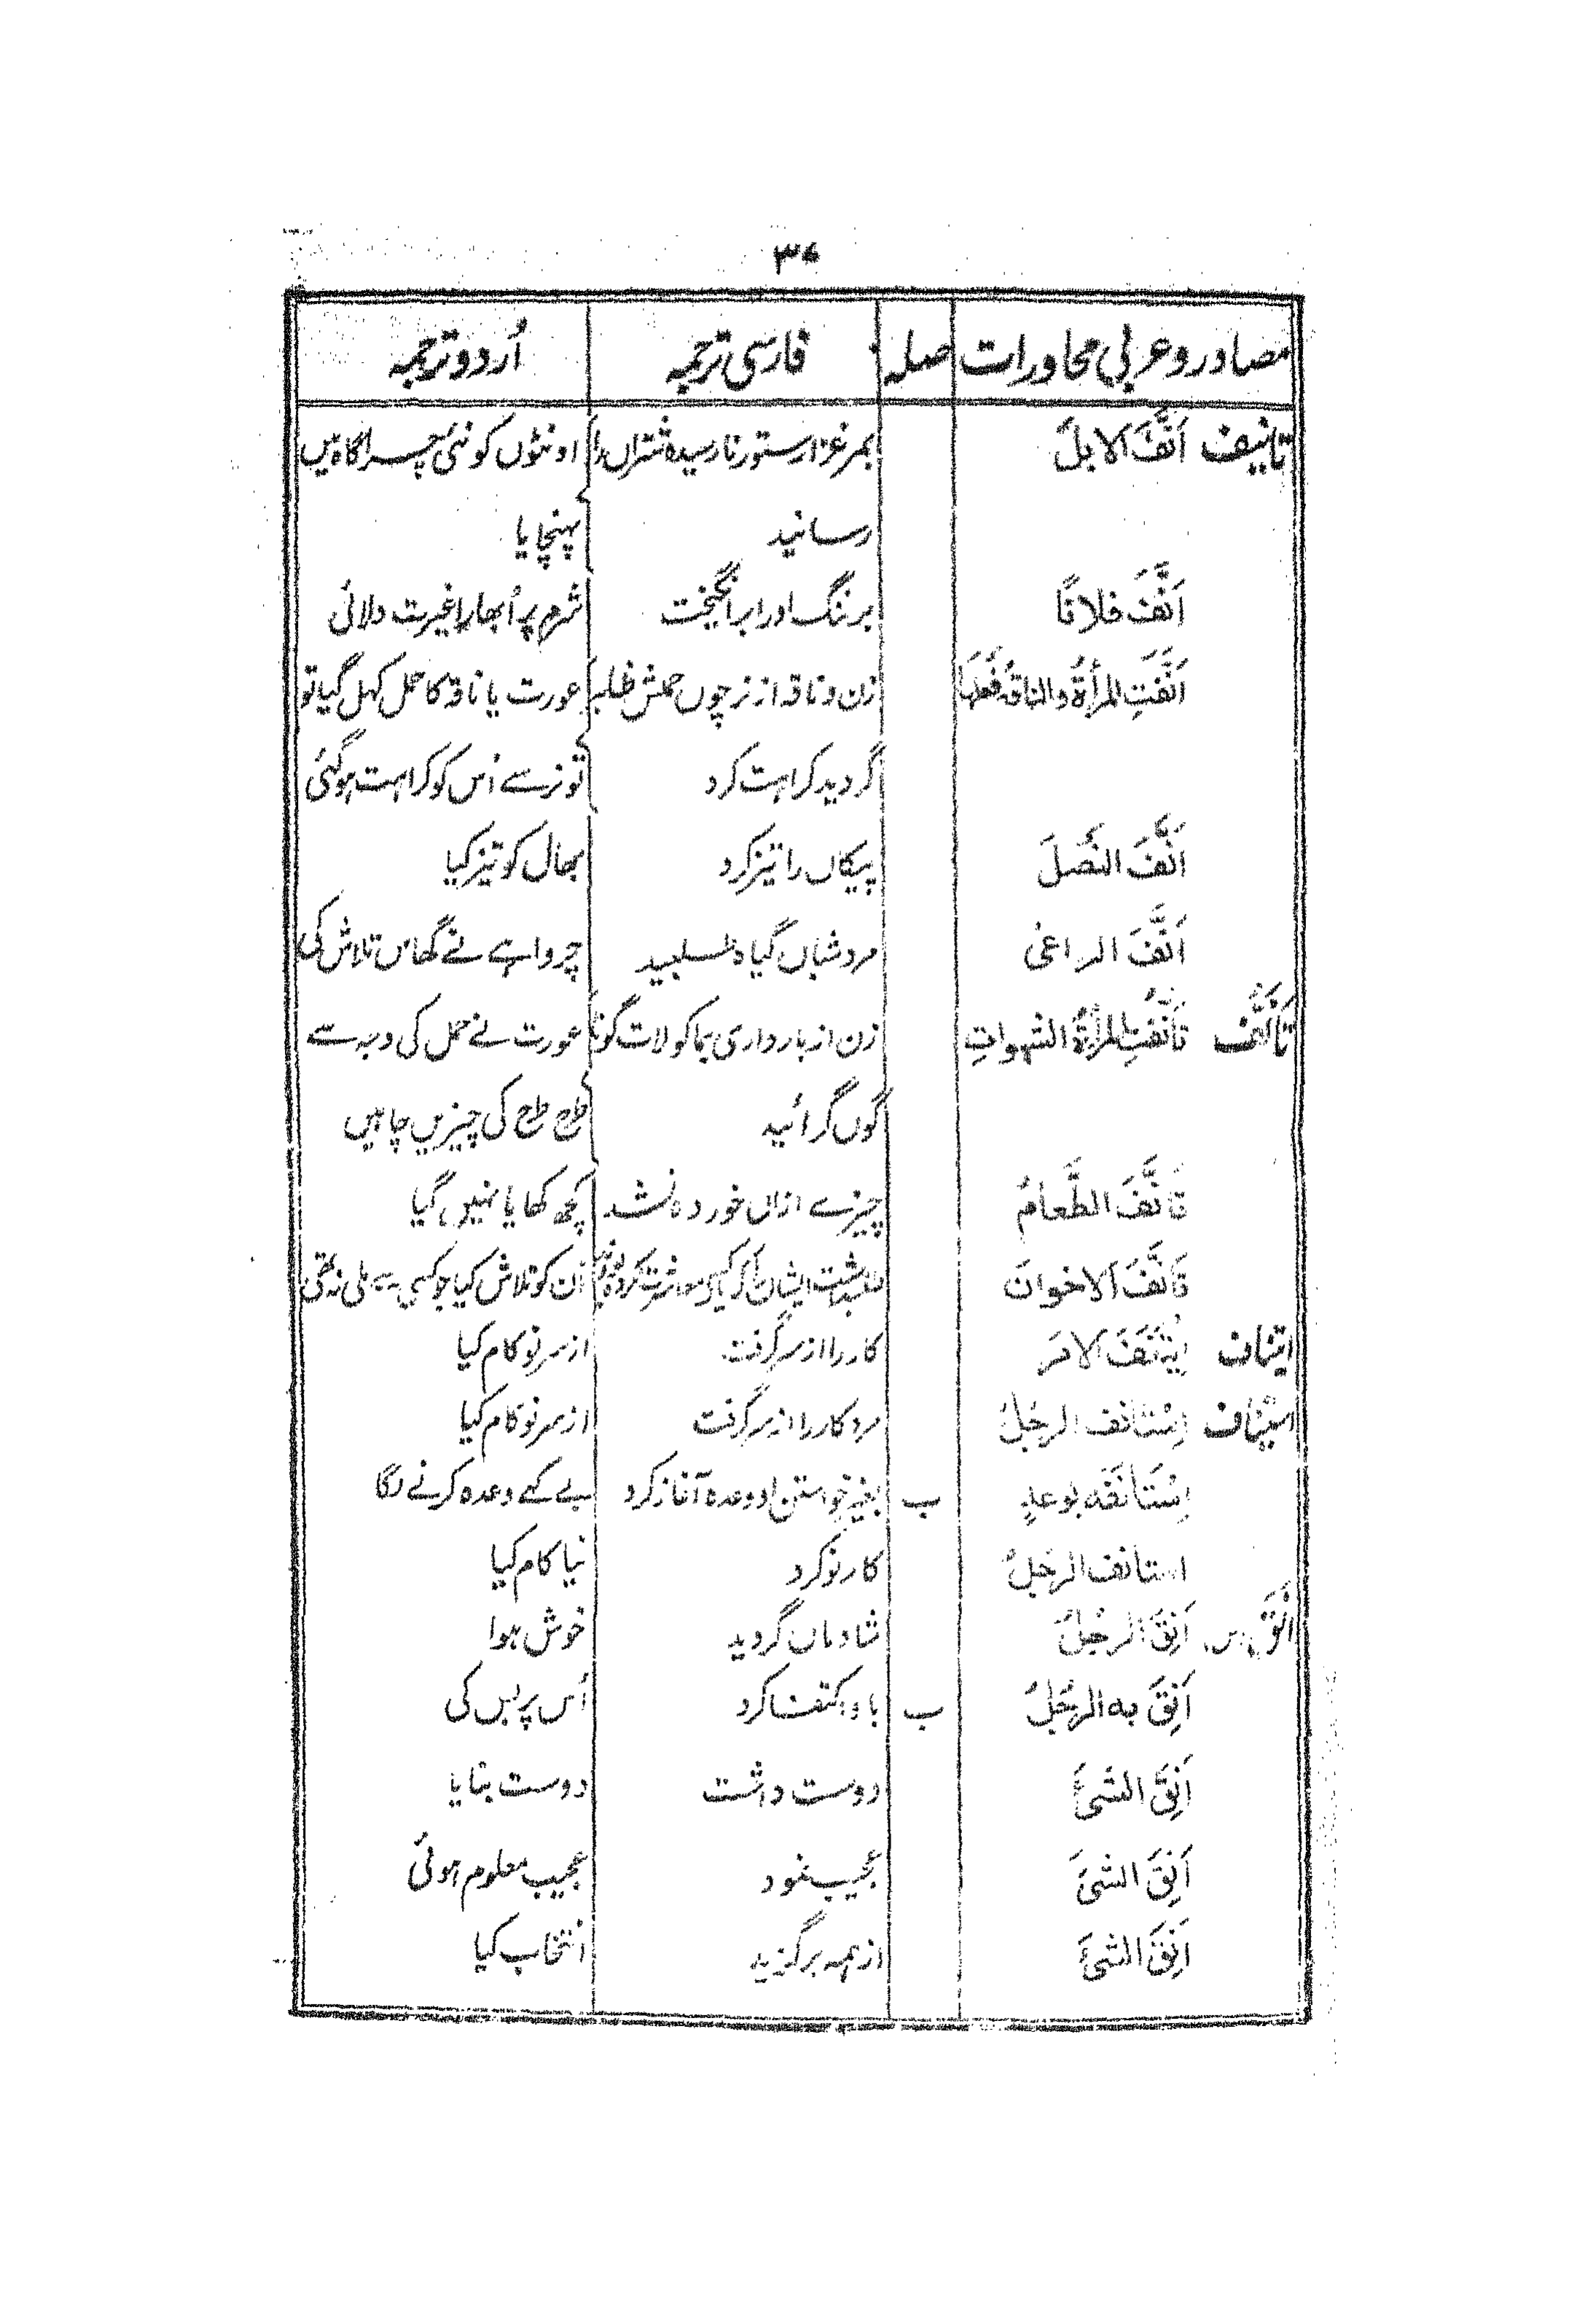 ۳۷
مصادر و عربی محاورات صلہ فارسی ترجمہ اُردو ترجمہ
تانیف اَنَّفَ الابلَ بمرغزار ستور نارسیدہ شتراں را اونٹوں کو نئی چراگاہ میں
رسانید پہنچایا
اَنَّفَ فلانًا برننگ اورا برانگیخت شرم پر اُبھارا غیرت دلائی
اَنَّفَتِ المرأۃُ والناقۃُ فَحلَہا زن و ناقہ از نر چوں حملش ظاہر عورت یا ناقہ کا حمل کہل گیا تو
گردید کراہت کرد تو نر سے اُس کو کراہت ہوگئی
اَنَّفَ النَّصلَ پیکاں را تیز کرد بھال کو تیز کیا
اَنَّفَ الراعی مرد شباں گیاہ طلبید چرواہے نے گھاس تلاش کی
تَأَنُّف تَأَنَّفَتِ المرأۃُ الشہواتِ زن از بارداری بماکولات گونا عورت نے حمل کی وجہ سے
گوں گرائید طرح طرح کی چیزیں چاہیں
تَأَنَّفَ الطَّعامُ چیزے ازاں خوردہ نشد کچھ کھایا نہیں گیا
تَأَنَّفَ الاخوانَ اُن کو تلاش کیا جو کسی سے ملی نہ تھی
ایتناف اِیتَنَفَ الامرَ کار را از سر گرفت از سر نو کام کیا
استیناف اِسْتانف الرجُلُ مرد کار را از سر گرفت از سر نو کام کیا
اِسْتَأنَفَہ بوعدٍ ب بغیر خواستن او وعدہ آغاز کرد بے کہے وعدہ کرنے لگا
استانف الرجُلُ کار نو کرد نیا کام کیا
اَنَق س. اَنِقَ الرجُلُ شادماں گردید خوش ہوا
اَنِقَ بہ الرجُلُ ب باو اکتفا کرد اُس پر بس کی
اَنِقَ الشیءَ دوست داشت دوست بنایا
اَنِقَ الشیءَ عجیب نمود عجیب معلوم ہوئی
اَنِقَ الشیءَ از ہمہ برگزید انتخاب کیا